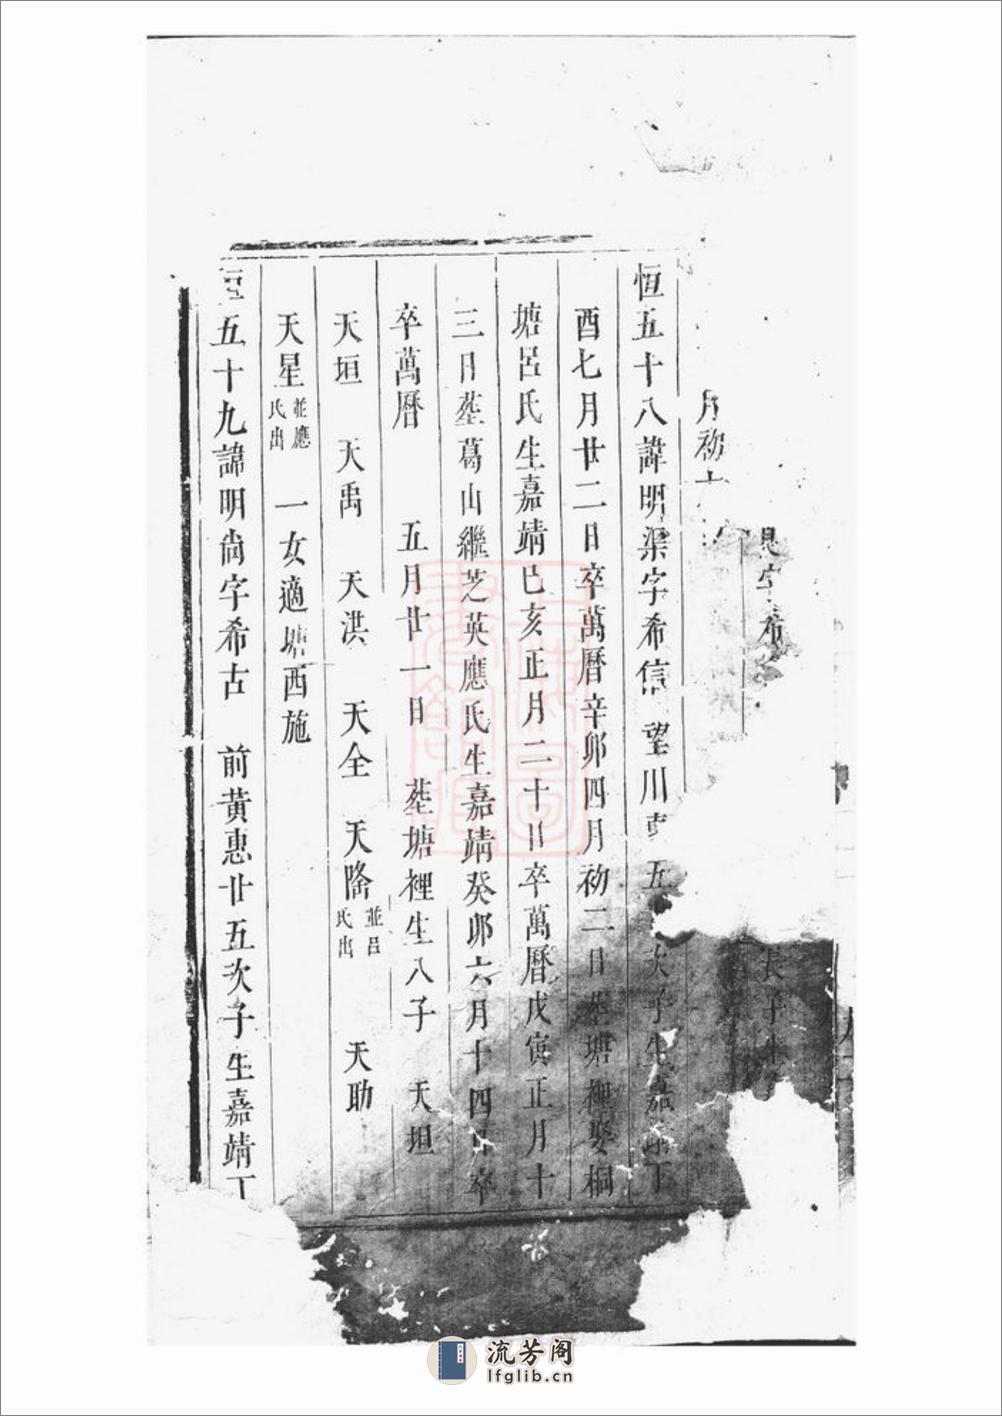 字希
長子生
月初十
恒五十八諱明渠字希信 望川 五 次子生嘉靖丁
酉七月廿二日卒萬曆辛卯四月初二日塟塘裡娶桐
塘呂氏生嘉靖己亥正月二十日卒萬曆戊寅正月十
三日塟葛山繼芝英應氏生嘉靖癸卯六月十四日卒
卒萬曆 五月廿一日 塟塘裡生八子 天坦
天垣 天禹 天洪 天全 天隆並呂氏出 天助
天星並應氏出 一女適塘西施
恒五十九諱明尚字希古 前黃惠廿五次子生嘉靖丁
上海圖書館藏
流芳阁
lfglib.cn